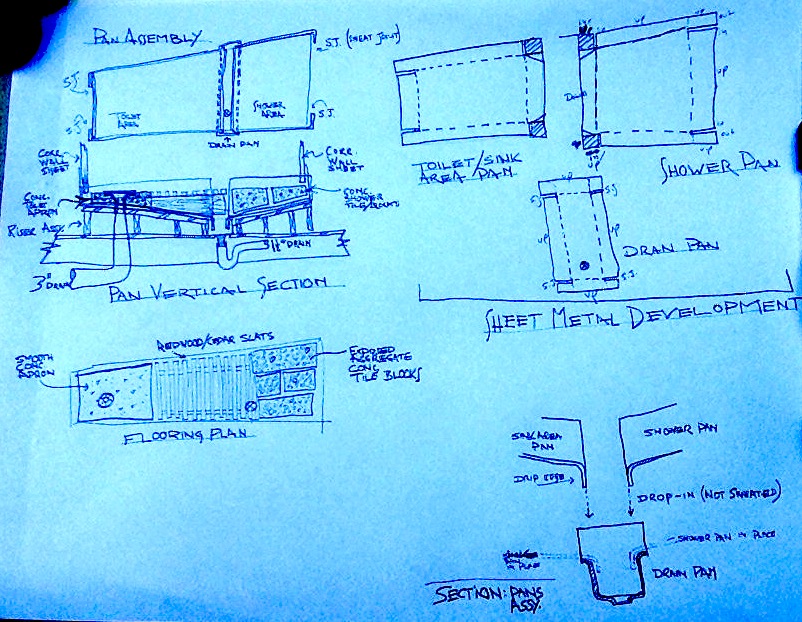 PAN ASSEMBLY
S.J. (SWEAT JOINT)
S.J.
S.J.
S.J.
TOILET
AREA
SHOWER
AREA
DRAIN PAN
CORR.
WALL
SHEET
CORR.
WALL
SHEET
CONC.
TILE
APRON
CONC.
SHOWER
RISER ASSY.
3" DRAIN
1½" DRAIN
PAN VERTICAL SECTION
TOILET/SINK
AREA PAN
UP
OUT
IN
UP
DOWN
UP
IN
OUT
UP
UP
SHOWER PAN
UP
S.J.
S.J.
UP
UP
S.J.
S.J.
UP
DRAN PAN
SHEET METAL DEVELOPMENT
REDWOOD/CEDAR SLATS
SMOOTH
CONC
APRON
EXPOSED
AGGREGATE
CONC
TILE BLOCKS
FLOORING PLAN
SINK AREA
PAN
SHOWER PAN
DRIP EDGE
DROP-IN (NOT SWEATED)
SHOWER PAN IN PLACE
IN PLACE
DRAIN PAN
SECTION: PANS
ASSY.